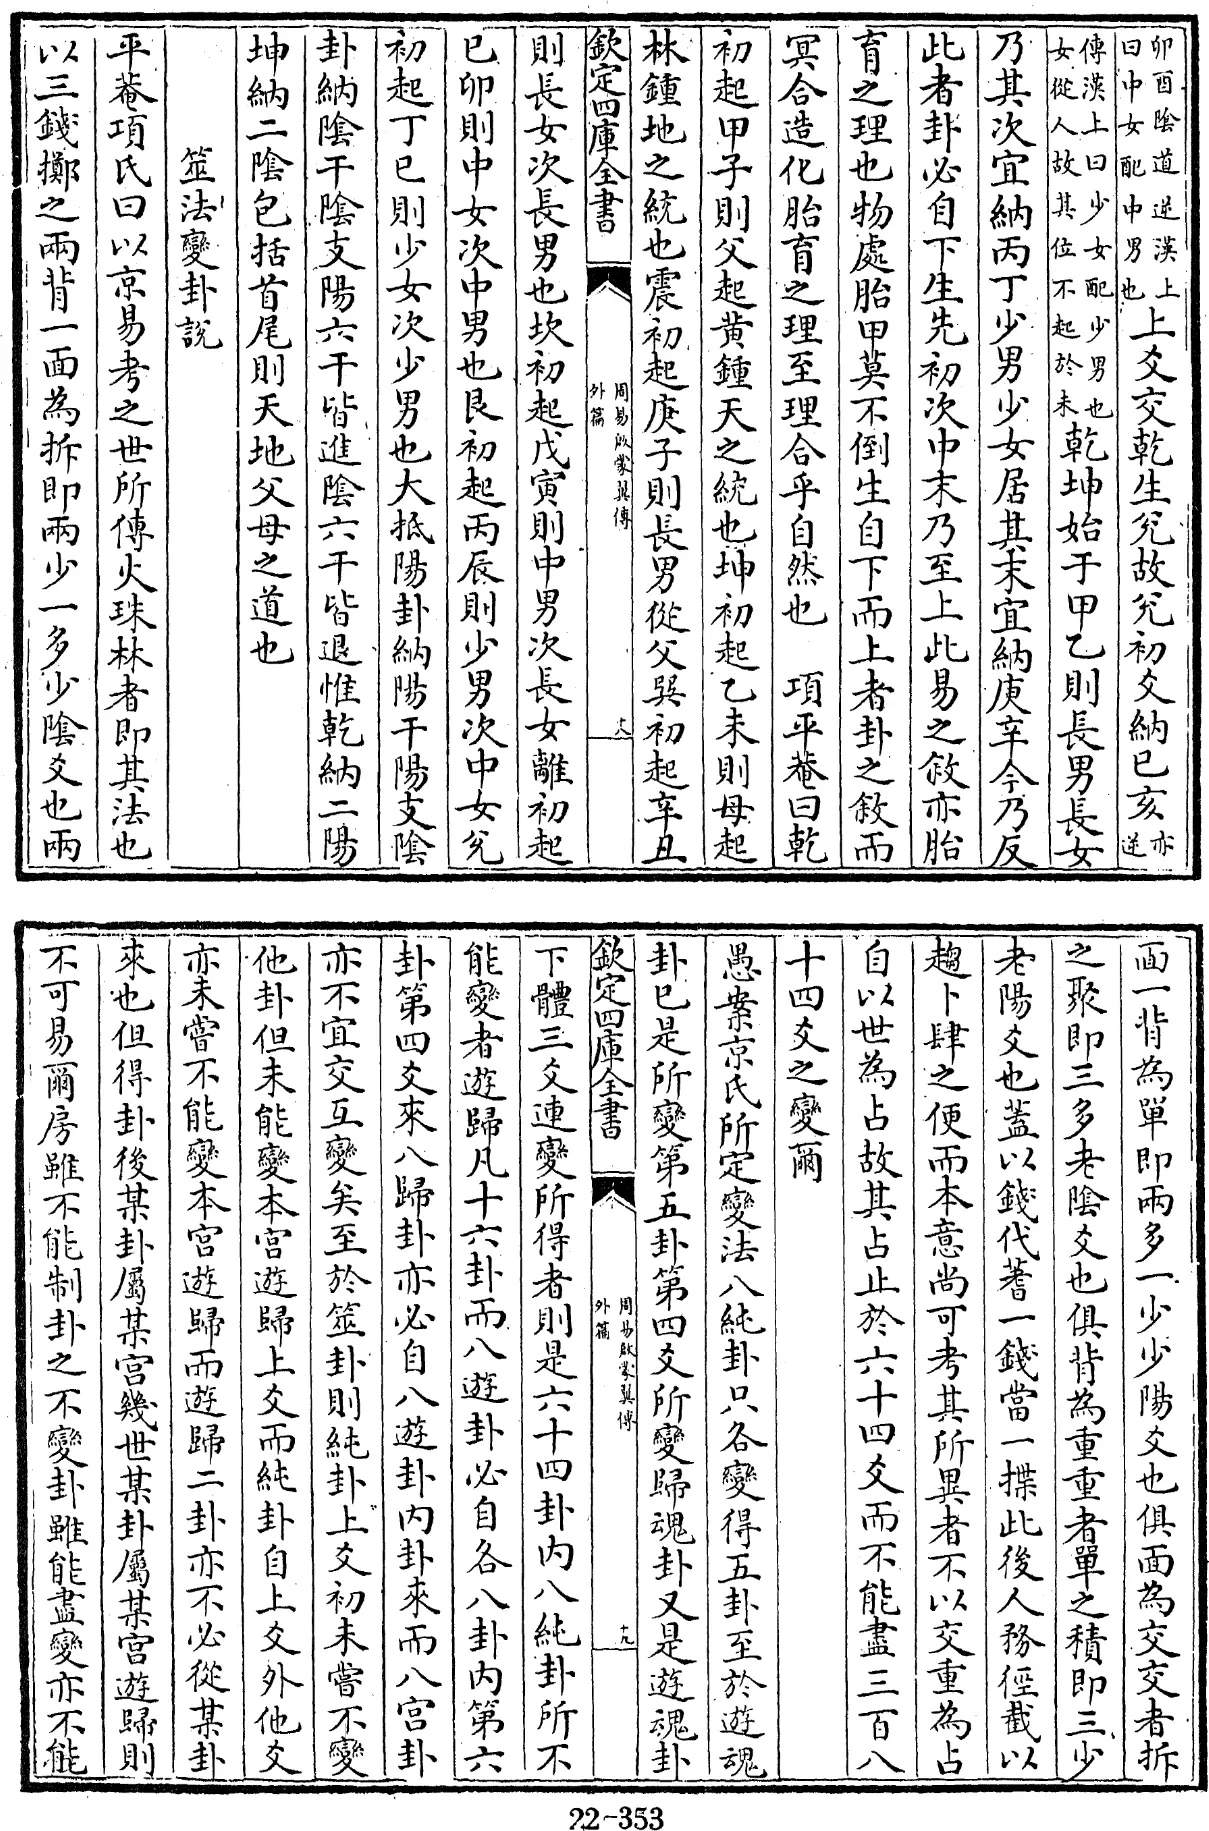 卯酉陰道逆漢上
曰中女配中男也
上爻交乾生兌故兌初爻納巳亥
亦
逆
傳漢上曰少女配少男也
女從人故其位不起於未
乾坤始于甲乙則長男長女
乃其次宜納丙丁少男少女居其末宜納庚辛今乃反
此者卦必自下生先初次中末乃至上此易之敘亦胎
育之理也物處胎甲莫不倒生自下而上者卦之敘而
冥合造化胎育之理至理合乎自然也　項平菴曰乾
初起甲子則父起黄鍾天之統也坤初起乙未則母起
林鍾地之統也震初起庚子則長男從父巽初起辛丑
欽定四庫全書
周易啟蒙翼傳
外篇
十八
則長女次長男也坎初起戊寅則中男次長女離初起
已卯則中女次中男也艮初起丙辰則少男次中女兌
初起丁巳則少女次少男也大抵陽卦納陽干陽支陰
卦納陰干陰支陽六干皆進陰六干皆退惟乾納二陽
坤納二陰包括首尾則天地父母之道也
筮法變卦説
平菴項氏曰以京易考之世所傳火珠林者即其法也
以三錢擲之兩背一面為拆即兩少一多少陰爻也兩
面一背為單即兩多一少少陽爻也俱面為交交者拆
之聚即三多老陰爻也俱背為重重者單之積即三少
老陽爻也蓋以錢代蓍一錢當一揲此後人務徑截以
趨卜肆之便而本意尚可考其所異者不以交重為占
自以世為占故其占止於六十四爻而不能盡三百八
十四爻之變爾
愚案京氏所定變法八純卦只各變得五卦至於遊魂
卦已是所變第五卦第四爻所變歸魂卦又是遊魂卦
欽定四庫全書
周易啟蒙翼傳
外篇
十九
下體三爻連變所得者則是六十四卦内八純卦所不
能變者遊歸凡十六卦而八遊卦必自各八卦内第六
卦第四爻來八歸卦亦必自八遊卦内卦來而八宫卦
亦不宜交互變矣至於筮卦則純卦上爻初未嘗不變
他卦但未能變本宫遊歸上爻而純卦自上爻外他爻
亦未嘗不能變本宫遊歸而遊歸二卦亦不必從某卦
來也但得卦後某卦屬某宫幾世某卦屬某宫遊歸則
不可易爾房雖不能制卦之不變卦雖能盡變亦不能
22-353